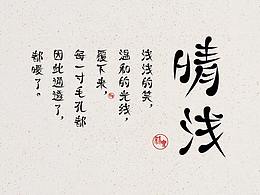 晴浅
浅浅的笑，
温和的光线，
覆下来，
每一寸毛孔都
因此通透了，
都暖了。